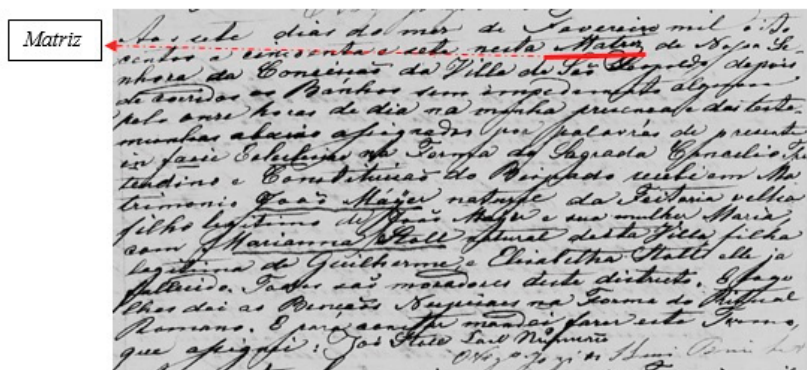 Matriz
Aos sete dias do mez de Fevereiro mil oito
centos e cincoenta e sete nesta Matriz de Nossa Se-
nhora da Conceicão da Villa de São Leopoldo, depois
de corridos os Banhos sem impedimento algum
pelo onze horas de dia na minha presença e das teste-
munhas abaixo assignados por palavras de presente
in facie Ecclesiae na Forma do Sagrado Concilio Tri
dentino e Constituição do Bispado recebi em Ma
trimonio João Mayer natural da Feitoria velha
filho legitimo de João Mayer e sua mulher Maria
com Marianna Stoll natural desta Villa filha
legitima de Guilherme e Elisabetha Stoll elle ja
fallecido. Todos são moradores deste districto. E logo
lhes dei as Bencãos Nupciaes na Forma do Ritual
Romano. E para constar mandei fazer este Termo,
que assignei: João Stoll